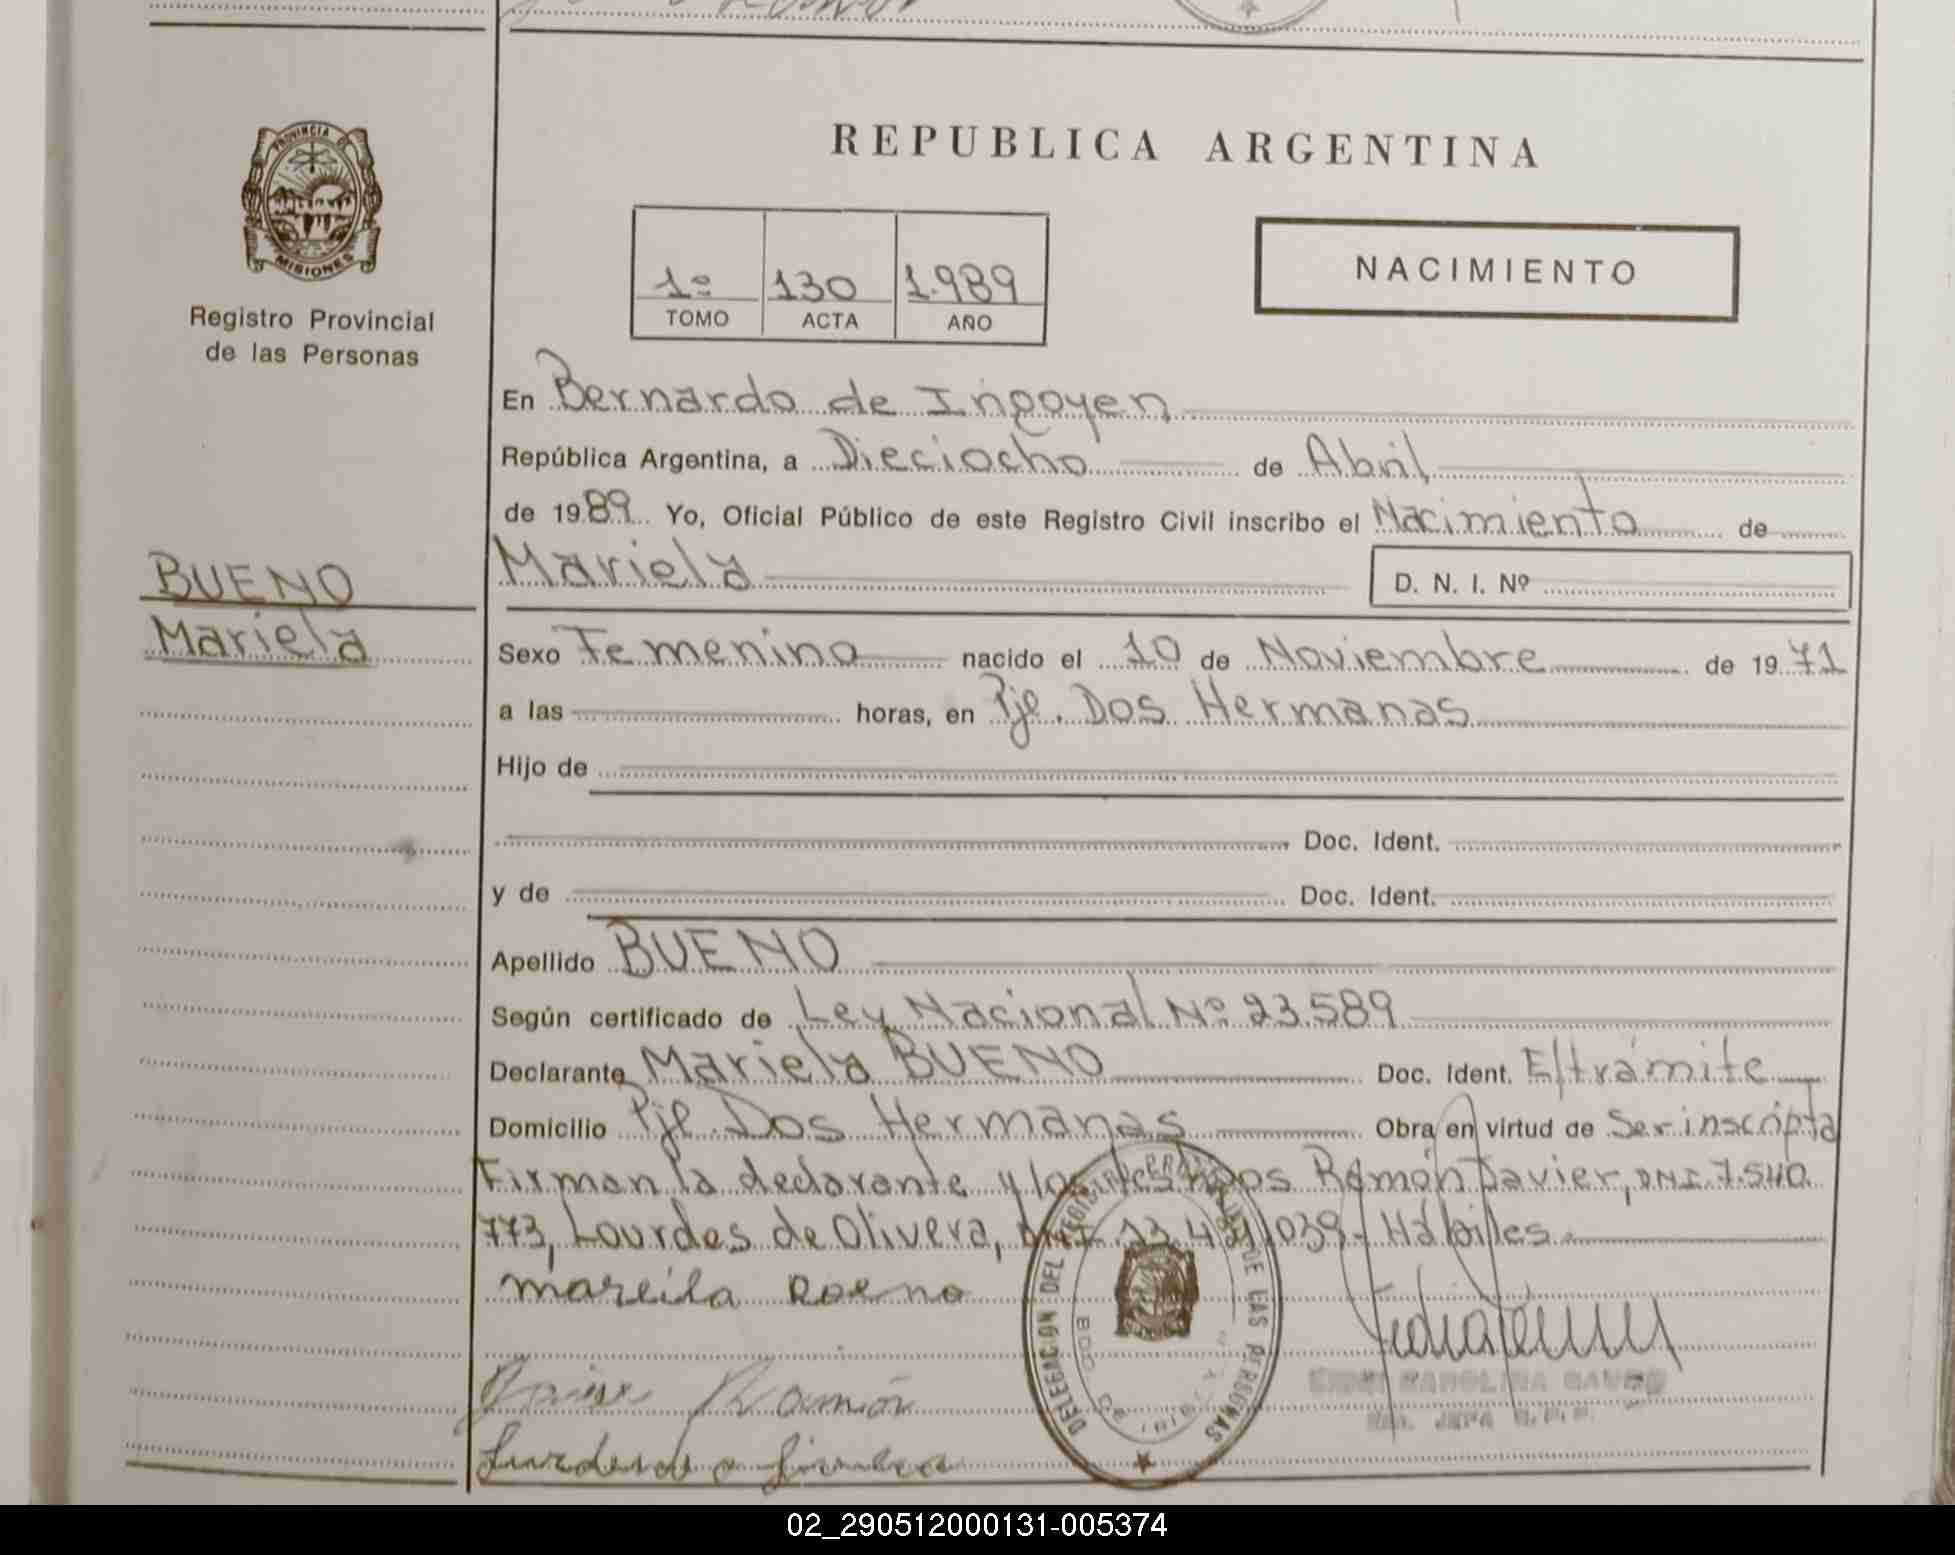 PROVINCIA DE
MISIONES
Registro Provincial
de las Personas
REPUBLICA ARGENTINA
1º 130 1.989
TOMO ACTA AÑO
NACIMIENTO
En Bernardo de Irigoyen
República Argentina, a Dieciocho de Abril
de 1989 Yo, Oficial Público de este Registro Civil inscribo el Nacimiento de
BUENO
Mariela
Mariela D. N. I. Nº
Sexo Femenino nacido el 10 de Noviembre de 1971
a las horas, en Pje. Dos Hermanas
Hijo de
Doc. Ident.
y de Doc. Ident.
Apellido BUENO
Según certificado de Ley Nacional Nº 23.589
Declarante Mariela BUENO Doc. Ident. E/trámite
Domicilio Pje. Dos Hermanas Obra en virtud de Ser inscripta
Firman la declarante y los testigos Ramón Javier, DNI. 7.540.
773, Lourdes de Olivera, DNI 13. 039 - Hábiles
mareila
Ramón
DELEGACION DEL REGISTRO PROVINCIAL DE LAS PERSONAS
BDO DE IRIGOYEN
CAROLINA
JEFA
02_290512000131-005374